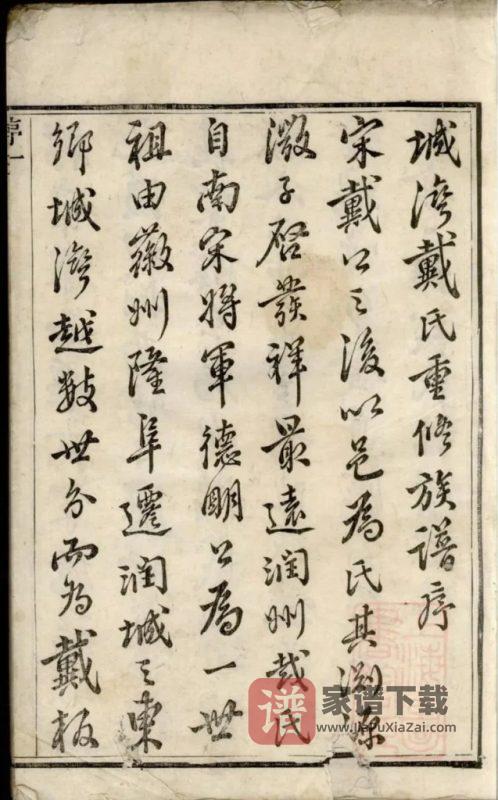 城灣戴氏重修族譜序
宋戴公之後以邑為氏其淵源
微子啓發祥最遠潤州戴氏
自南宋將軍德明公為一世
祖由徽州隆阜遷潤城之東
鄉城灣越數世分而為戴板
譜
家谱下载
www.JiaPuXiaZai.com